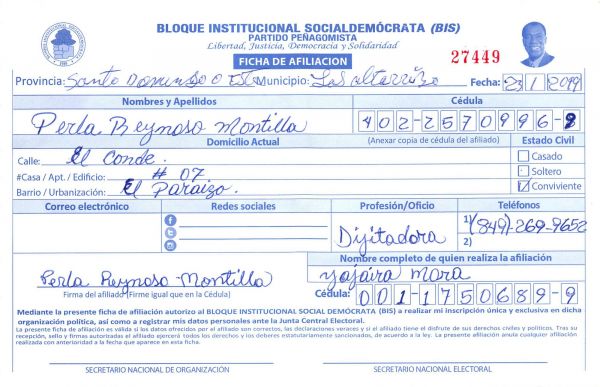 BLOQUE INSTITUCIONAL SOCIALDEMÓCRATA (BIS)
PARTIDO PEÑAGOMISTA
Libertad, Justicia, Democracia y Solidaridad
FICHA DE AFILIACION
27449
Provincia: Santo Domingo O Este Municipio: Los alcarrizo Fecha: 23/1/2019
Nombres y Apellidos Cédula
Perla Reynoso Montilla 402-2570996-2
Domicilio Actual (Anexar copia de cédula del afiliado) Estado Civil
Calle: El Conde. Casado
#Casa / Apt. / Edificio: # 07 Soltero
Barrio / Urbanización: El Paraizo. Conviviente
Correo electrónico Redes sociales Profesión/Oficio Teléfonos
Dijitadora 1) (849)-269-9652
2)
Nombre completo de quien realiza la afiliación
Perla Reynoso Montilla yajaira mora
Firma del afiliado (Firme igual que en la Cédula) Cédula: 001-1750689-9
Mediante la presente ficha de afiliación autorizo al BLOQUE INSTITUCIONAL SOCIAL DEMÓCRATA (BIS) a realizar mi inscripción única y exclusiva en dicha
organización política, así como a registrar mis datos personales ante la Junta Central Electoral.
La presente ficha de afiliación es válida si los datos ofrecidos por el afiliado son correctos, las declaraciones veraces y si el afiliado tiene el disfrute de sus derechos civiles y políticos. Tras su
recepción, sello y firmas autorizadas el afiliado ejercerá todos los derechos y los deberes estatutariamente sancionados, de acuerdo a la ley. La presente afiliación anula cualquier afiliación
realizada con anterioridad a la fecha que aparece en esta ficha.
SECRETARIO NACIONAL DE ORGANIZACIÓN SECRETARIO NACIONAL ELECTORAL